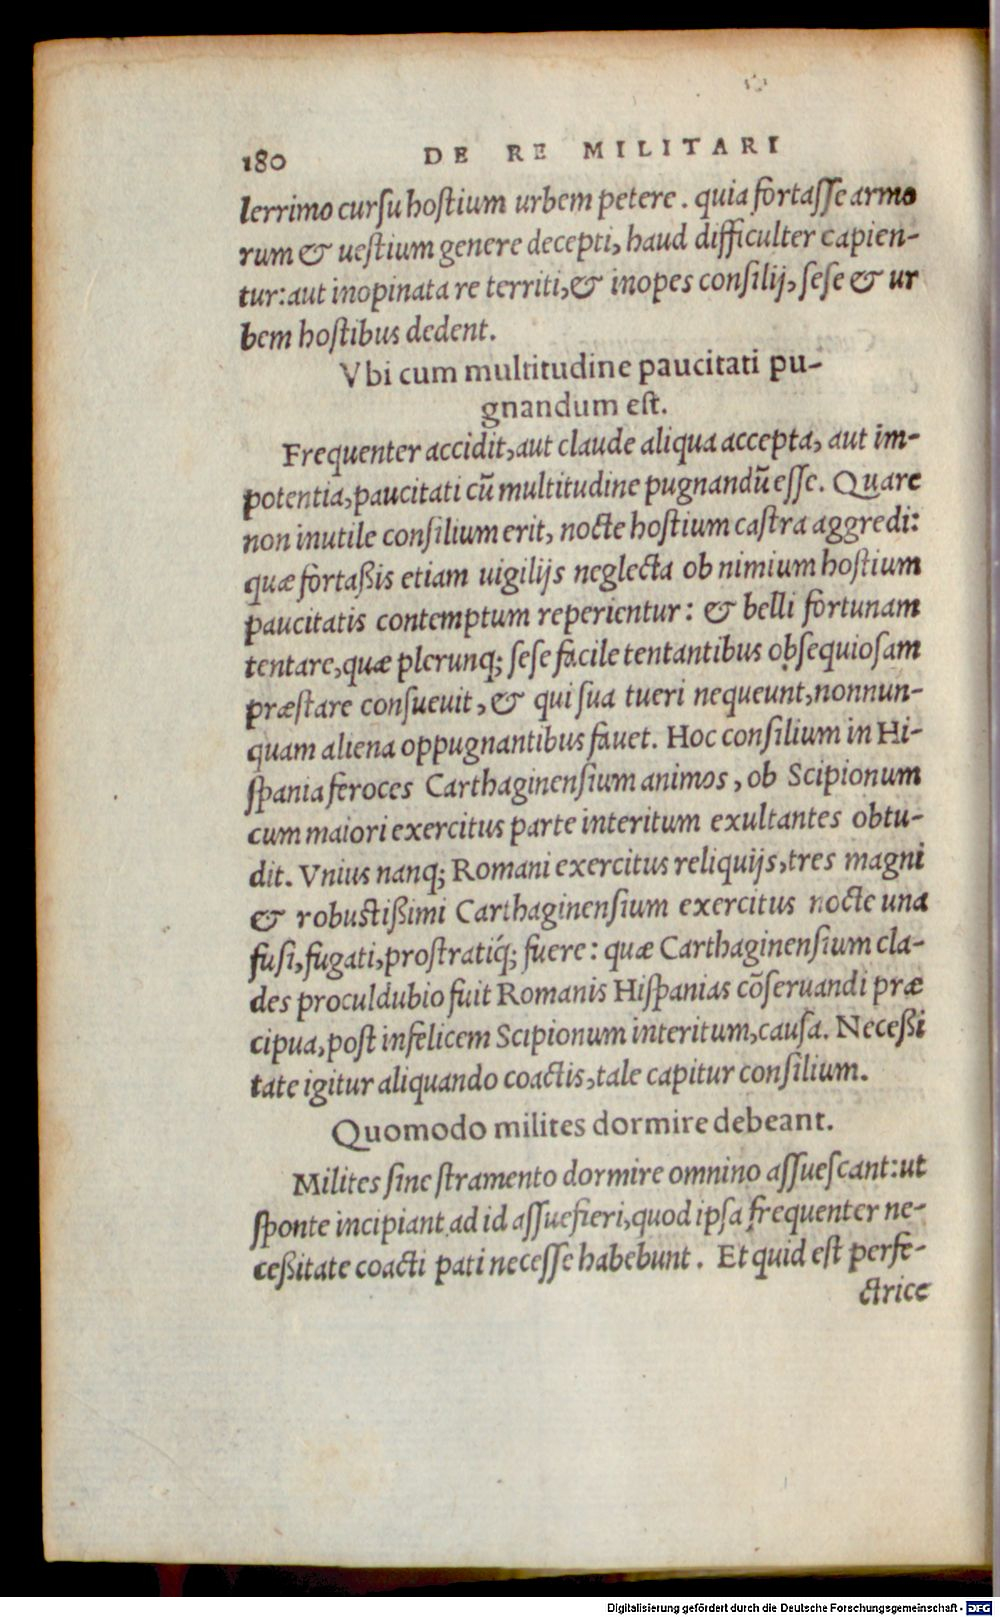 180 DE RE MILITARI
lerrimo curſu hoſtium urbem petere. quia fortaſſe armo
rum & ueſtium genere decepti, haud difficulter capien-
tur: aut inopinata re territi, & inopes conſilij, ſeſe & ur
bem hoſtibus dedent.
Vbi cum multitudine paucitati pu-
gnandum eſt.
Frequenter accidit, aut claude aliqua accepta, aut im-
potentia, paucitati cū multitudine pugnandū eſſe. Quare
non inutile conſilium erit, nocte hoſtium caſtra aggredi:
quæ fortaßis etiam uigilijs neglecta ob nimium hoſtium
paucitatis contemptum reperientur: & belli fortunam
tentare, quæ plerunq; ſeſe facile tentantibus obſequioſam
præſtare conſueuit, & qui ſua tueri nequeunt, nonnun-
quam aliena oppugnantibus fauet. Hoc conſilium in Hi-
ſpania feroces Carthaginenſium animos, ob Scipionum
cum maiori exercitus parte interitum exultantes obtu-
dit. Vnius nanq; Romani exercitus reliquijs, tres magni
& robuſtißimi Carthaginenſium exercitus nocte una
fuſi, fugati, proſtratiq́; fuere: quæ Carthaginenſium cla-
des proculdubio fuit Romanis Hiſpanias cōſeruandi præ
cipua, poſt infelicem Scipionum interitum, cauſa. Neceßi
tate igitur aliquando coactis, tale capitur conſilium.
Quomodo milites dormire debeant.
Milites ſine ſtramento dormire omnino aſſueſcant: ut
ſponte incipiant ad id aſſuefieri, quod ipſa frequenter ne-
ceßitate coacti pati neceſſe habebunt. Et quid eſt perfe-
ctrice
Digitalisierung gefördert durch die Deutsche Forschungsgemeinschaft - DFG